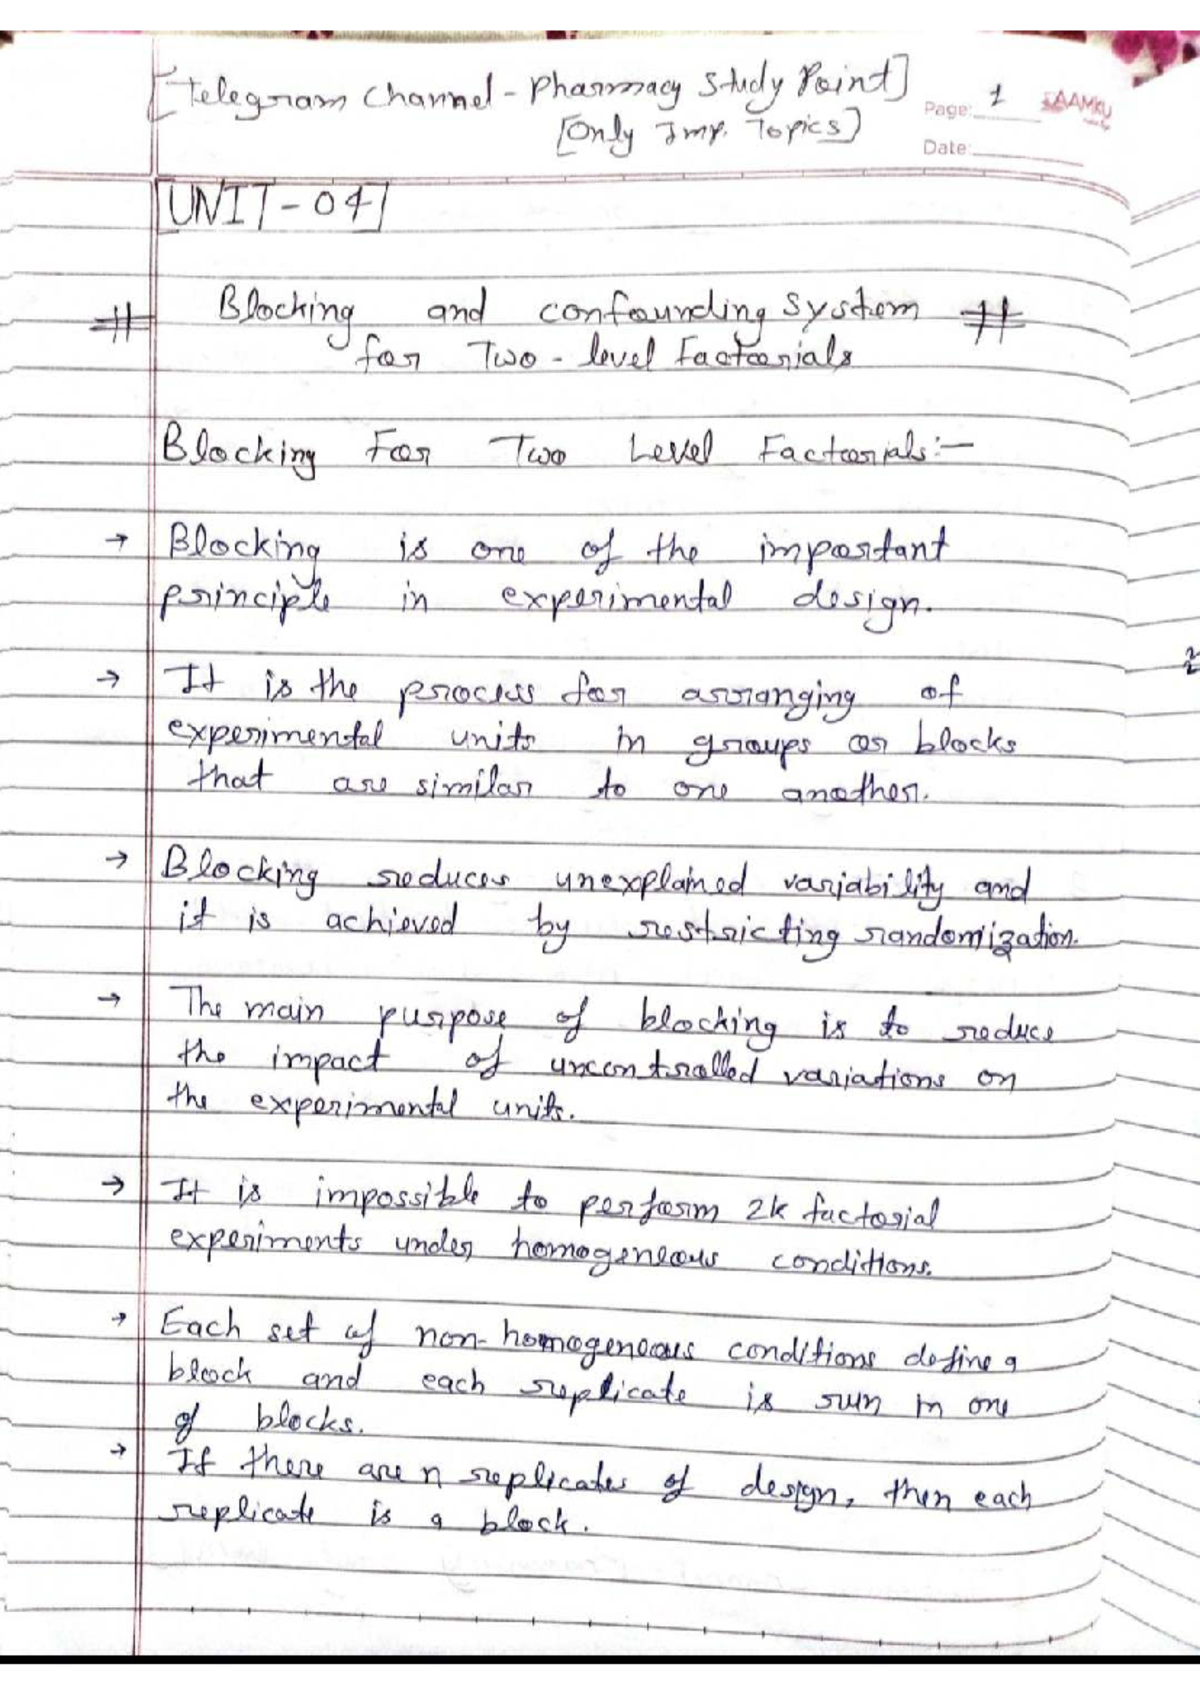 [Telegram Channel - Pharmacy Study Point]
[Only Imp. Topics]
Page: 1
SAAMKU
Date:
UNIT-04
# Blocking and confounding system #
for Two-level Factorials
Blocking For Two Level Factorials:-
→ Blocking is one of the important
principle in experimental design.
→ It is the process for arranging of
experimental units in groups or blocks
that are similar to one another.
→ Blocking reduces unexplained variability and
it is achieved by restricting randomization.
→ The main purpose of blocking is to reduce
the impact of uncontrolled variations on
the experimental units.
→ It is impossible to perform 2k factorial
experiments under homogeneous conditions.
→ Each set of non-homogeneous conditions define a
block and each replicate is run in one
of blocks.
→ If there are n replicates of design, then each
replicate is a block.